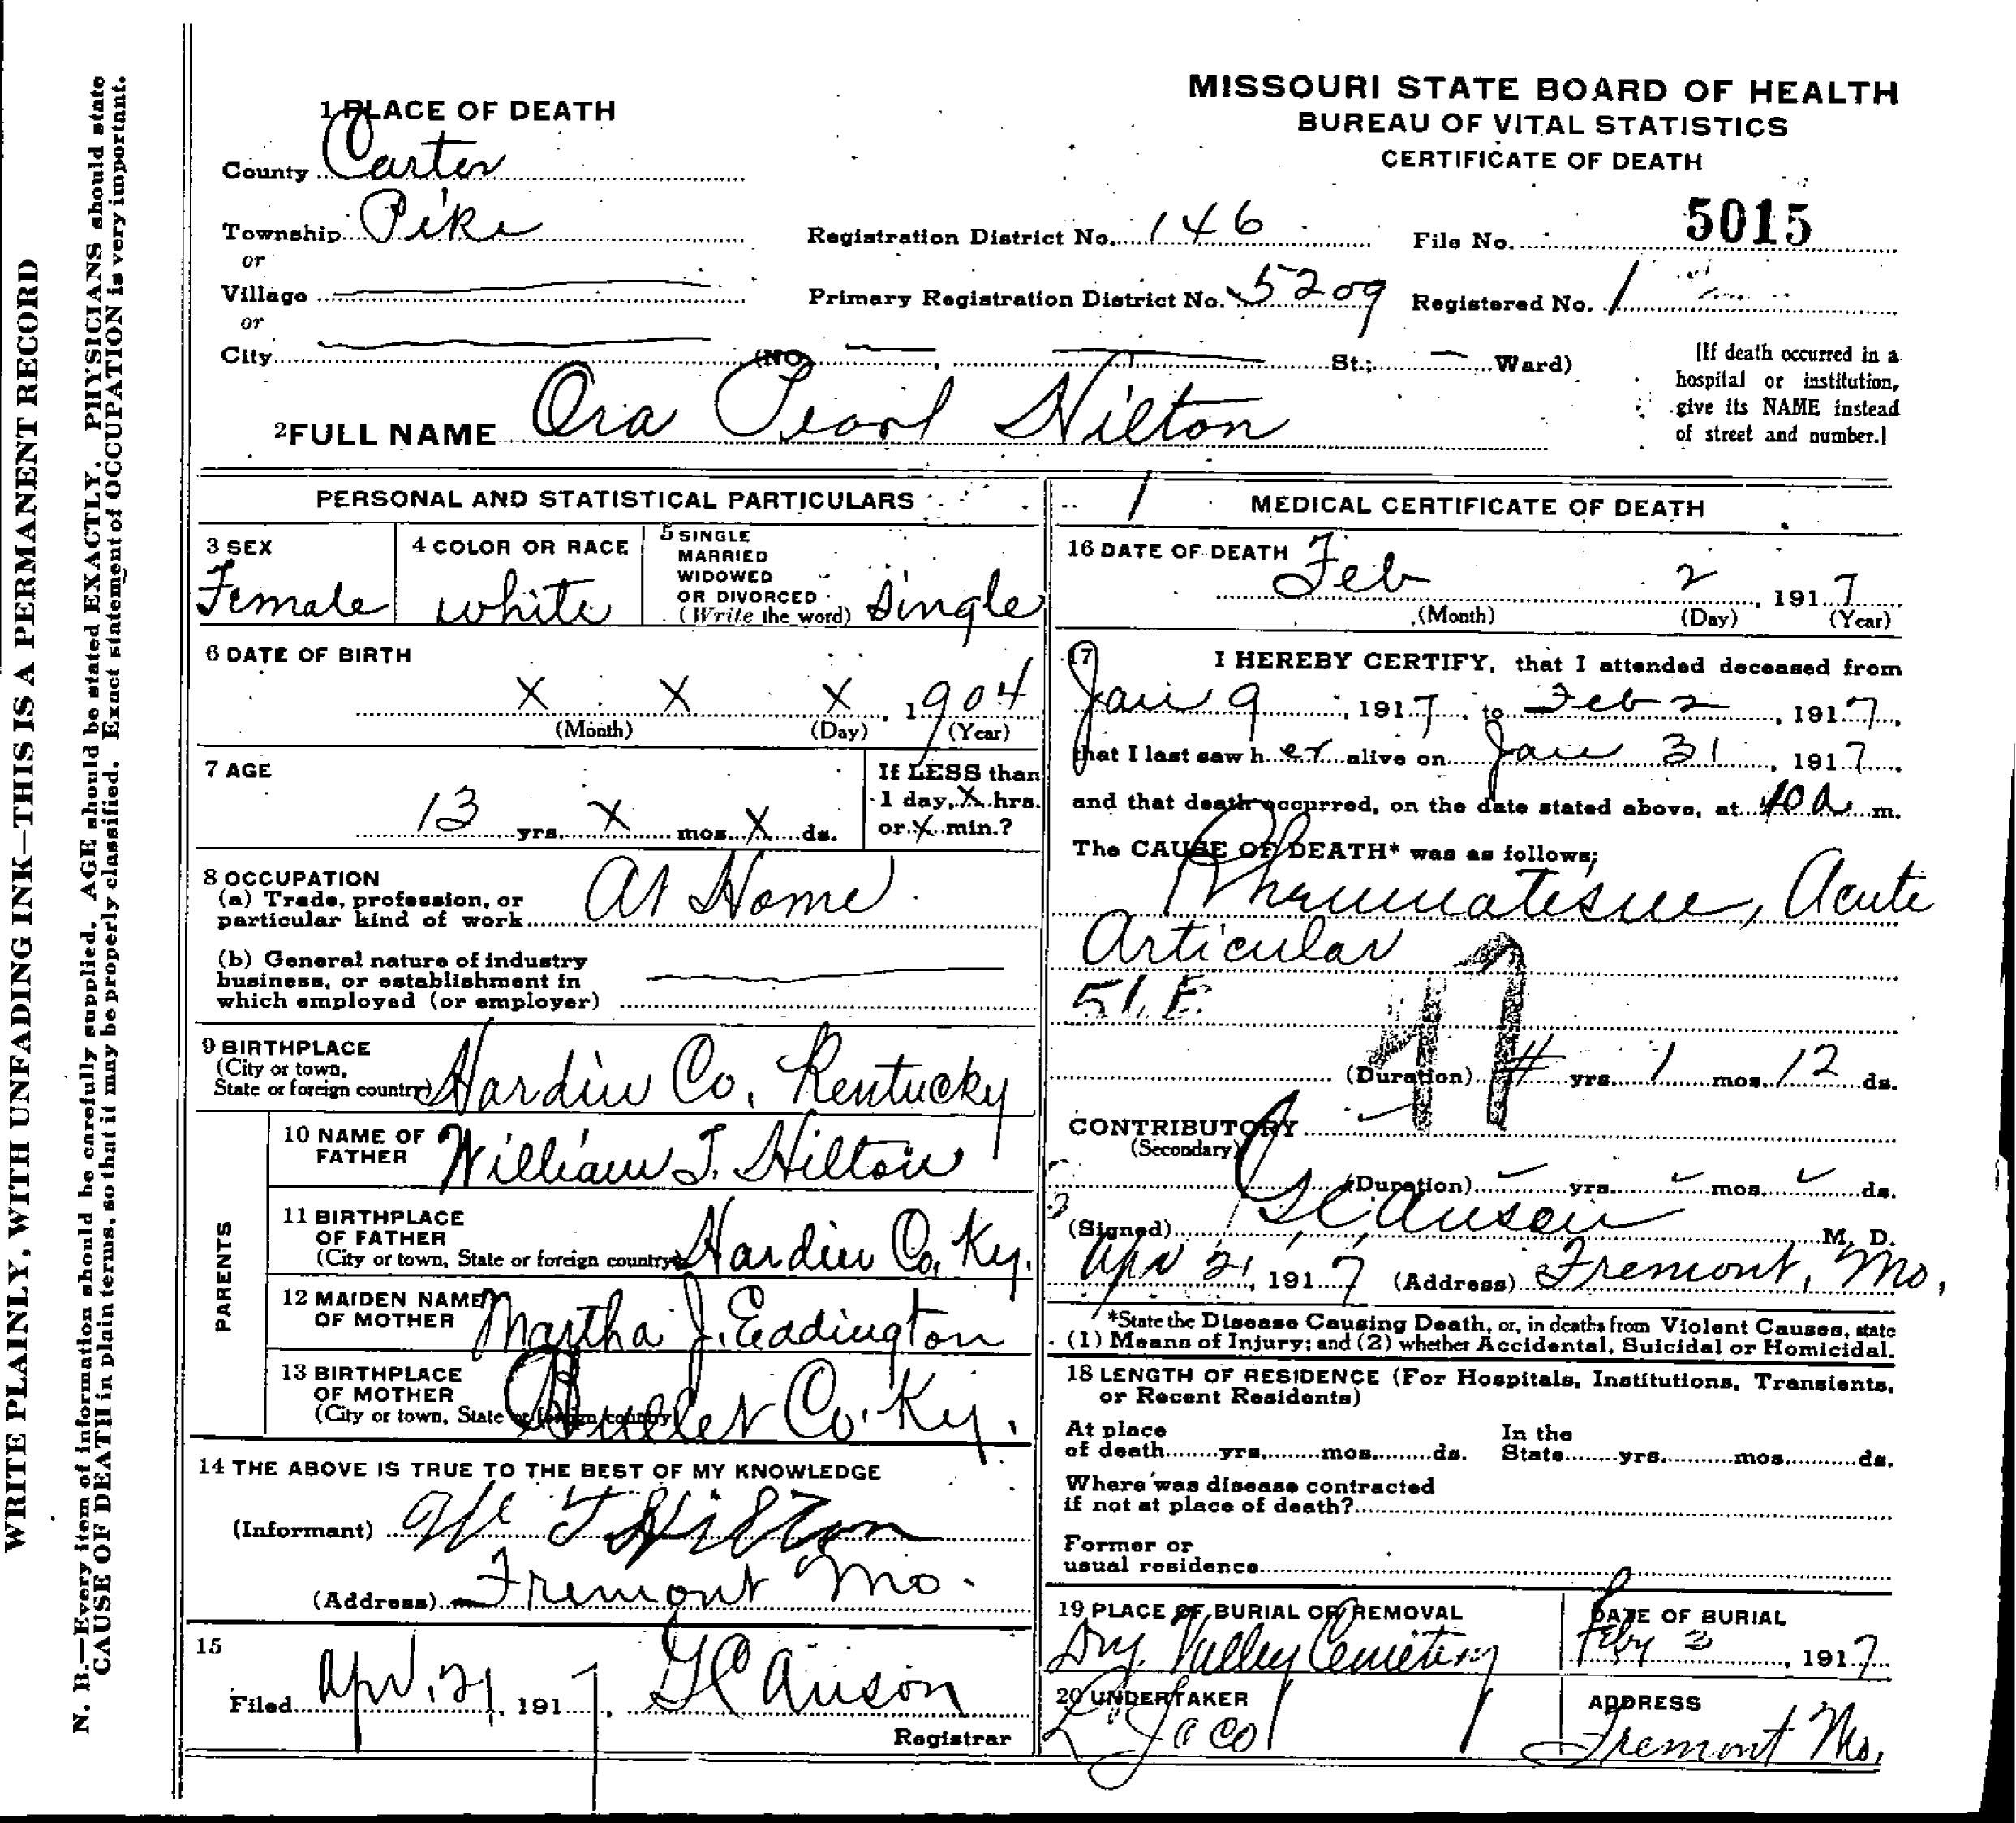 WRITE PLAINLY, WITH UNFADING INK—THIS IS A PERMANENT RECORD
N. B.—Every item of information should be carefully supplied. AGE should be stated EXACTLY. PHYSICIANS should state
CAUSE OF DEATH in plain terms, so that it may be properly classified. Exact statement of OCCUPATION is very important.
MISSOURI STATE BOARD OF HEALTH
BUREAU OF VITAL STATISTICS
CERTIFICATE OF DEATH
1 PLACE OF DEATH
County Carter
Township Pike
or
Village
or
City (NO. , St.; Ward)
Registration District No. 146
File No. 5015
Primary Registration District No. 5209
Registered No. 1
[If death occurred in a
hospital or institution,
give its NAME instead
of street and number.]
2 FULL NAME Ora Pearl Hilton
PERSONAL AND STATISTICAL PARTICULARS
3 SEX
Female
4 COLOR OR RACE
white
5 SINGLE
MARRIED
WIDOWED
OR DIVORCED
(Write the word) Single
6 DATE OF BIRTH
X X X, 1904
(Month) (Day) (Year)
7 AGE
13 yrs. X mos. X ds.
If LESS than
1 day, X hrs.
or X min.?
8 OCCUPATION
(a) Trade, profession, or
particular kind of work At Home
(b) General nature of industry
business, or establishment in
which employed (or employer)
9 BIRTHPLACE
(City or town,
State or foreign country) Hardin Co, Kentucky
PARENTS
10 NAME OF
FATHER William T. Hilton
11 BIRTHPLACE
OF FATHER
(City or town, State or foreign country) Hardin Co, Ky.
12 MAIDEN NAME
OF MOTHER Martha J. Eadington
13 BIRTHPLACE
OF MOTHER
(City or town, State or foreign country) Co. Ky.
14 THE ABOVE IS TRUE TO THE BEST OF MY KNOWLEDGE
(Informant) W T Hilton
(Address) Fremont Mo.
15
Filed Apr. 21, 1917, G C Anson
Registrar
MEDICAL CERTIFICATE OF DEATH
16 DATE OF DEATH
Feb 2, 1917
(Month) (Day) (Year)
17 I HEREBY CERTIFY, that I attended deceased from
Jan 9, 1917, to Feb 2, 1917,
that I last saw her alive on Jan 31, 1917,
and that death occurred, on the date stated above, at m.
The CAUSE OF DEATH* was as follows:
Rheumatism, Acute
Articular
51. E.
47
(Duration) # yrs. 1 mos. 12 ds.
CONTRIBUTORY
(Secondary)
(Duration) yrs. mos. ds.
(Signed) G C Anson M. D.
Apr 21, 1917 (Address) Fremont, Mo,
*State the Disease Causing Death, or, in deaths from Violent Causes, state
(1) Means of Injury; and (2) whether Accidental, Suicidal or Homicidal.
18 LENGTH OF RESIDENCE (For Hospitals, Institutions, Transients,
or Recent Residents)
At place
of death yrs. mos. ds.
In the
State yrs. mos. ds.
Where was disease contracted
if not at place of death?
Former or
usual residence
19 PLACE OF BURIAL OR REMOVAL
Dry Valley Cemetery
DATE OF BURIAL
Feby 3, 1917
20 UNDERTAKER
ADDRESS
Fremont Mo.